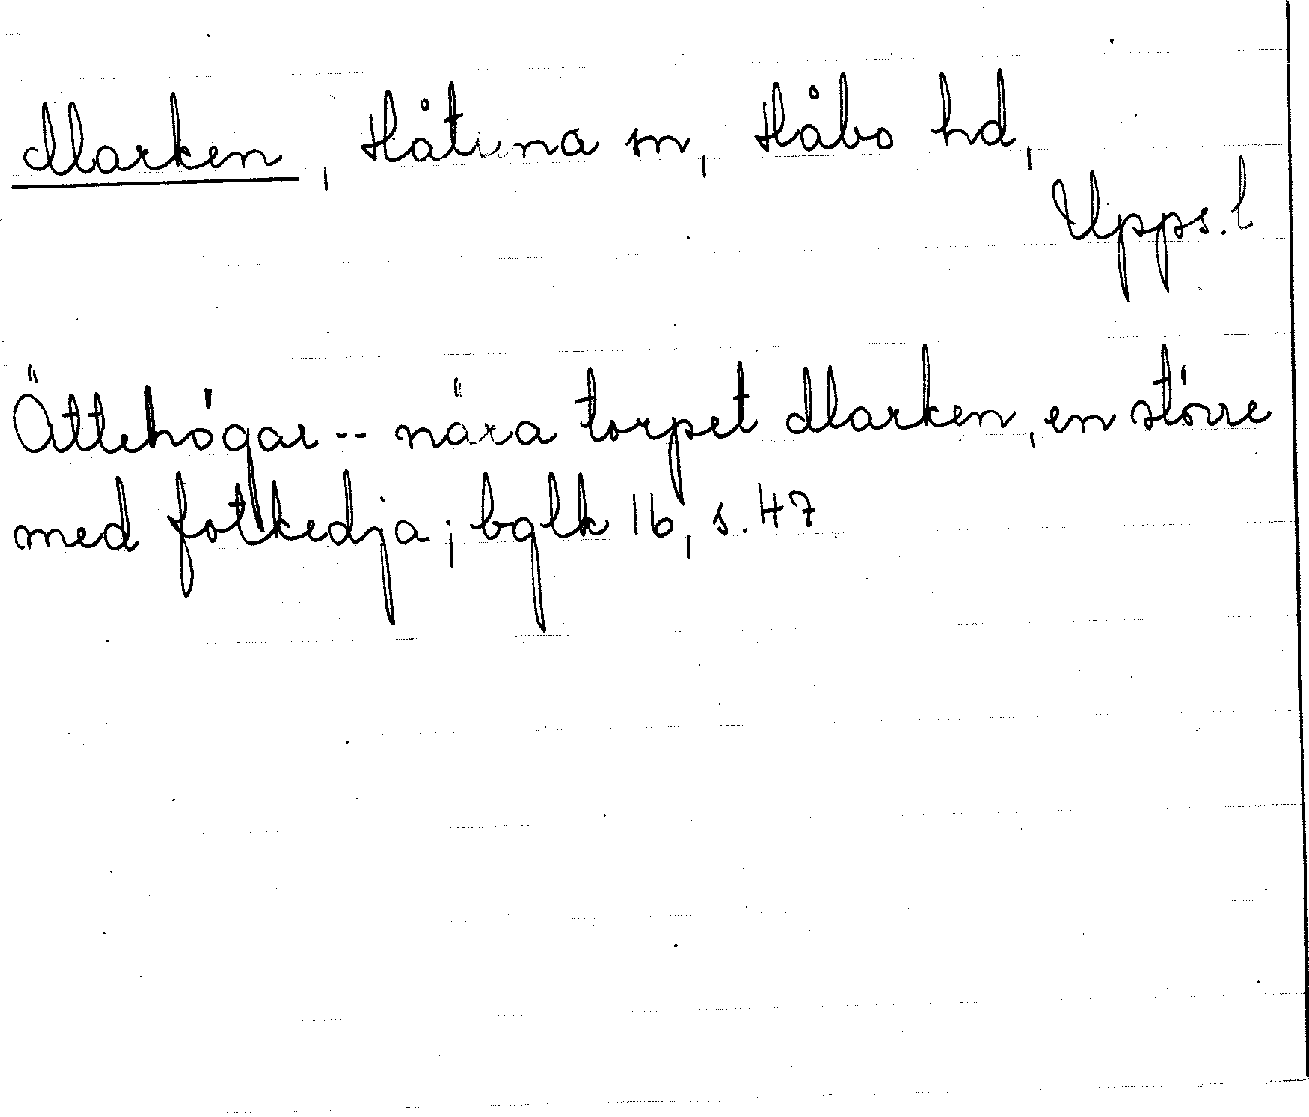 Marken, Håtuna sn, Håbo hd,
Upps. l
Ättehögar -- nära torpet Marken, en större
med fotkedja; bglk 16, s. 47